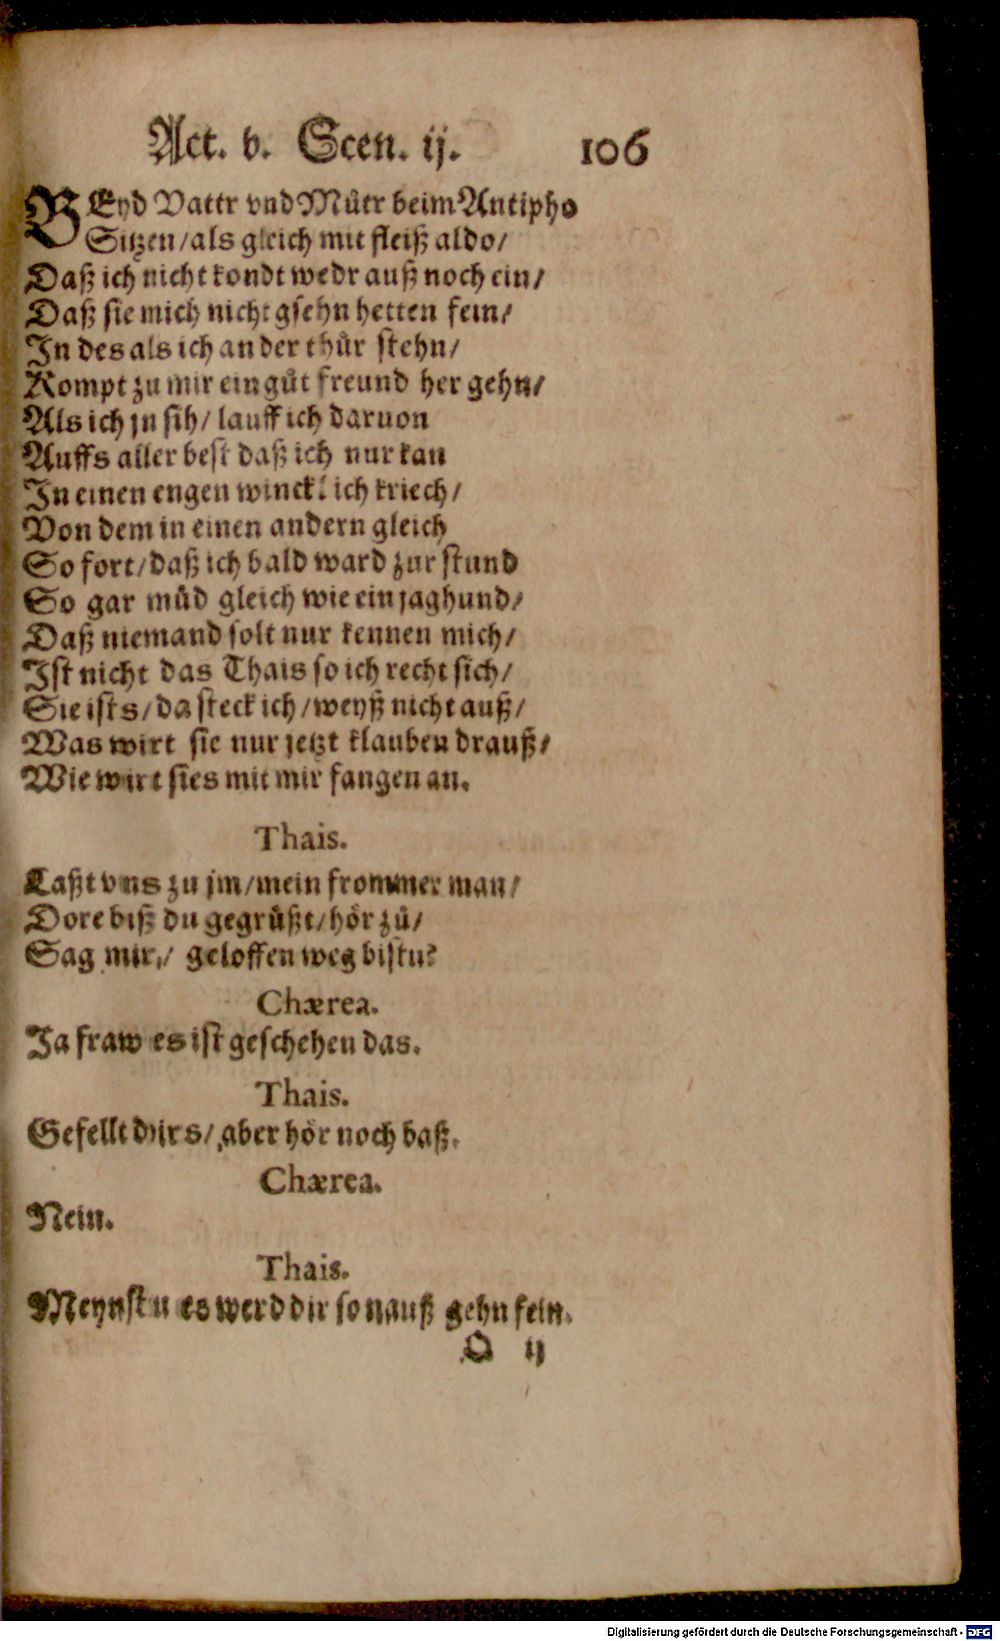 Act. v. Scen. ij. 106
BEyd Vattr vnd Můtr beim Antipho
Sitzen/als gleich mit fleiß aldo/
Daß ich nicht kondt wedr auß noch ein/
Daß sie mich nicht gsehn hetten fein/
In des als ich an der thür stehn/
Kompt zu mir ein gůt freund her gehn/
Als ich jn sih/ lauff ich daruon
Auffs aller best daß ich nur kan
In einen engen winckl ich kriech/
Von dem in einen andern gleich
So fort/daß ich bald ward zur stund
So gar müd gleich wie ein jaghund/
Daß niemand solt nur kennen mich/
Ist nicht das Thais so ich recht sich/
Sie ists/da steck ich/weyß nicht auß/
Was wirt sie nur jetzt klauben drauß/
Wie wirt sies mit mir fangen an.
Thais.
Laßt vns zu jm/mein frommer man/
Dore biß du gegrüßt/hör zů/
Sag mir,/ geloffen weg bistu?
Chærea.
Ja fraw es ist geschehen das.
Thais.
Gefellt dirs/ aber hör noch baß.
Chærea.
Nein.
Thais.
Meynstu es werd dir so nauß gehn fein.
O ij
Digitalisierung gefördert durch die Deutsche Forschungsgemeinschaft - DFG